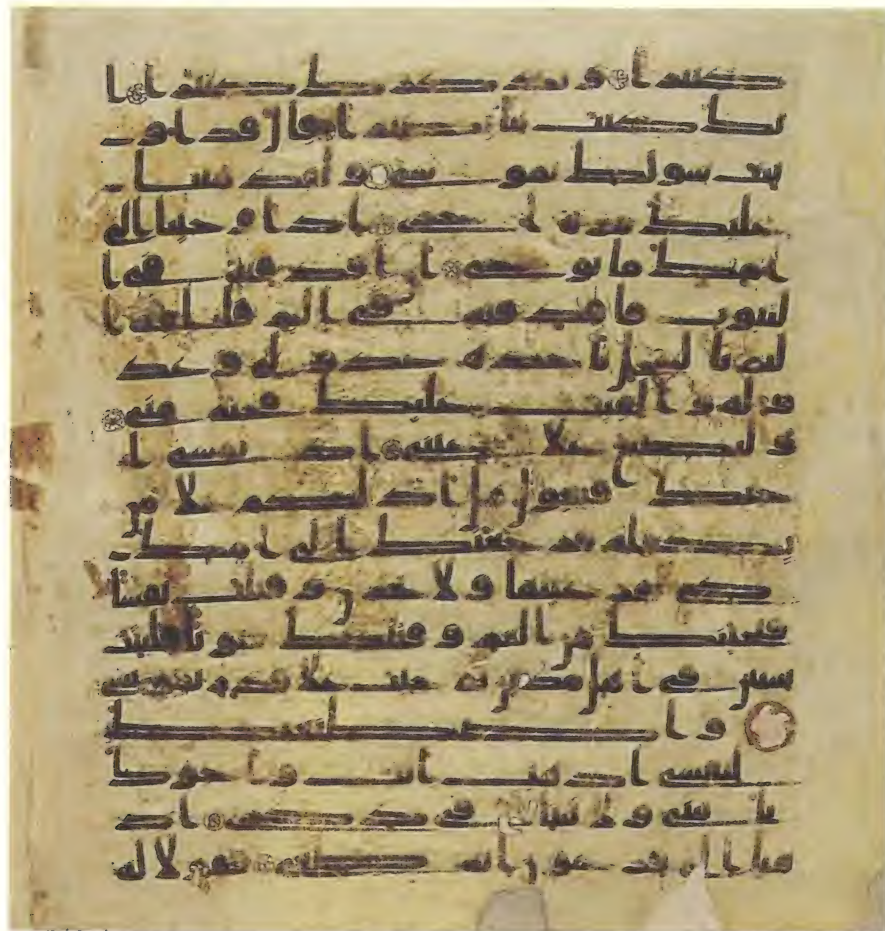 كثيرا و نذكرك كثيرا ا
نك كنت بنا بصيرا قال قد او
تيت سولك يموسى و لقد مننا
عليك مره اخرى اذ اوحينا الى
امك ما يوحى ان اقذفيه في ا
لتبوت فاقذفيه في اليم فليلقه ا
ليم بالساحل ياخذه عدو لي و عد
و له و القيت عليك محبه مني
و لتصنع على عيني اذ تمشي ا
ختك فتقول هل ادلكم على من
يكفله فرجعنك الى امك
كي تقر عينها و لا تحزن و قتلت نفسا
فنجينك من الغم و فتنك فتونا فلبثت
سنين في اهل مدين ثم جئت على قدر يموسى
و اصطنعتك
لنفسي اذهب انت و اخوك
بايتي و لا تنيا في ذكري اذ
هبا الى فرعون انه طغى فقولا له